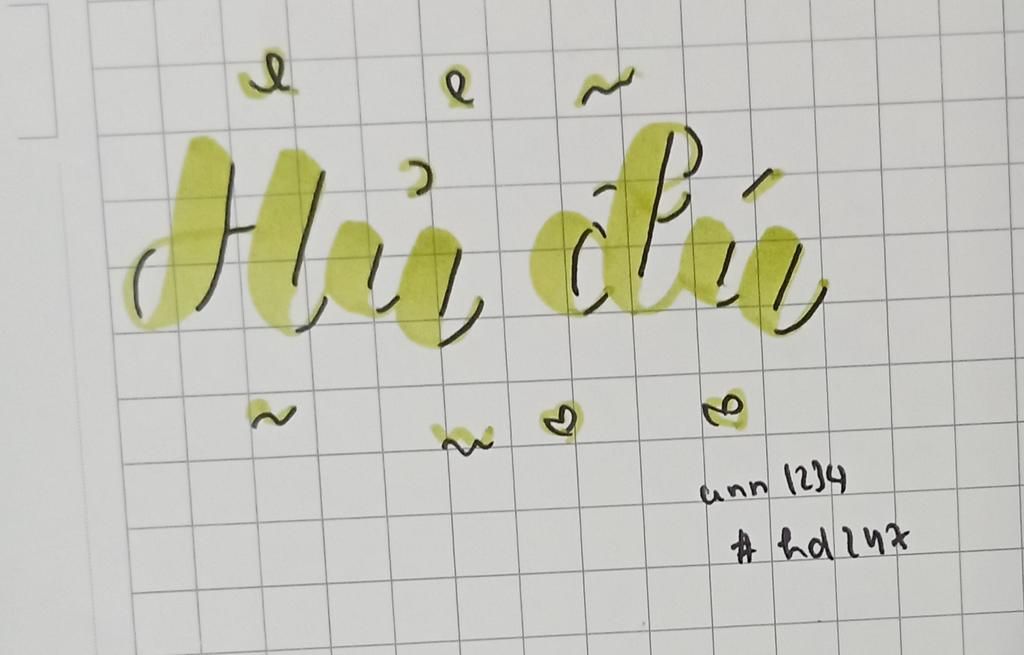 Hủ đú
ann 1234
# hd 247